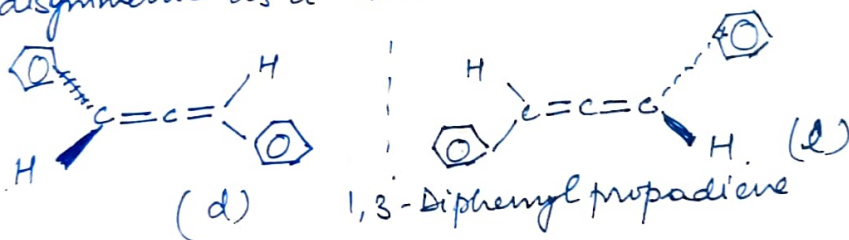 H H
C=C= C=C=C
H H. (l)
(d) 1,3-Diphenyl propadiene